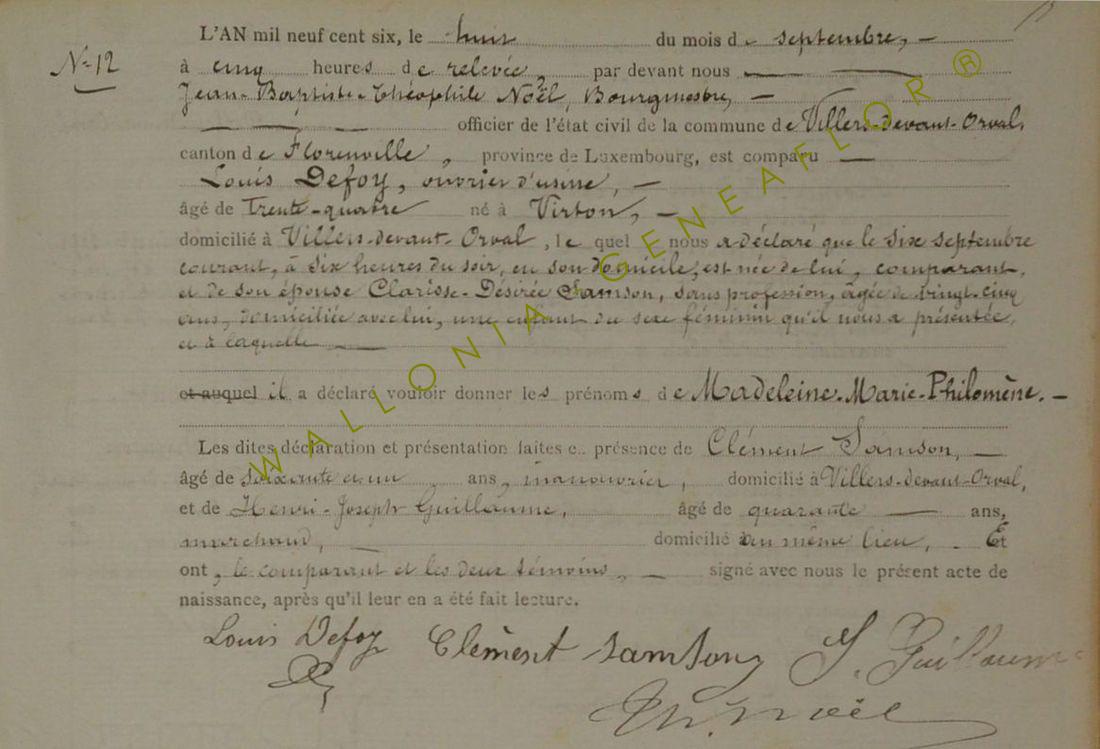 L'AN mil neuf cent six, le huit du mois de septembre, —
N° 12
à cinq heures de relevée, par devant nous — —
Jean-Baptiste-Théophile Noël, Bourgmestre, —
— — — officier de l'état civil de la commune de Villers-devant-Orval,
canton de Florenville, province de Luxembourg, est comparu —
Louis Defoy, ouvrier d'usine, —
âgé de Trente-quatre né à Virton, —
domicilié à Villers-devant-Orval, lequel nous a déclaré que le six septembre
courant, à six heures du soir, en son domicile, est née de lui, comparant,
et de son épouse Clarisse-Désirée Samson, sans profession, âgée de vingt-cinq
ans, domiciliée avec lui, une enfant du sexe féminin qu'il nous a présentée,
et à laquelle —
et auquel il a déclaré vouloir donner les prénoms de Madeleine-Marie-Philomène. —
Les dites déclaration et présentation faites e.. présence de Clément Samson, —
âgé de soixante et un ans, manouvrier, domicilié à Villers-devant-Orval,
et de Henri-Joseph Guillaume, âgé de quarante — ans,
marchand, — domicilié au même lieu, . Et
ont, le comparant et les deux témoins, — signé avec nous le présent acte de
naissance, après qu'il leur en a été fait lecture.
Louis Defoy Clément Samson J. Guillaume
Th. Noël
WALLONIA GENEAFLOR ®